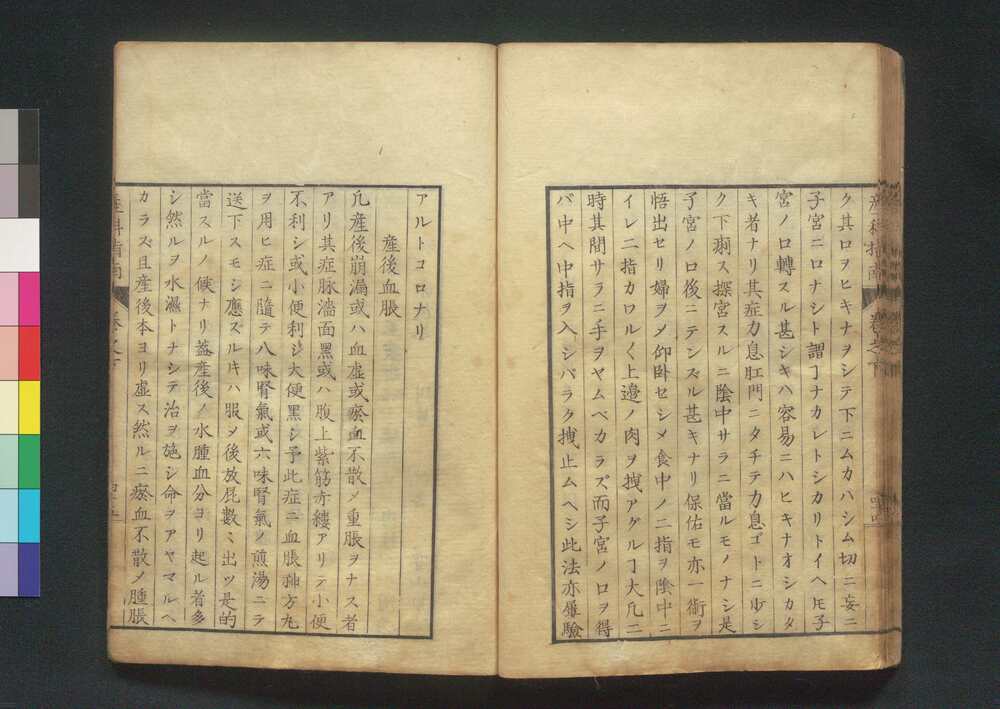 ク其口ヲヒキナヲシテ下ニムカハシム切ニ妄ニ
子宮ニ口ナシト謂ヿナカレトシカリトイヘ𪜈子
宮ノ口轉スル甚シキハ容易ニハヒキナオシカタ
キ者ナリ其症力息肛門ニタチテ力息ゴトニ少シ
ク下痢ス探宮スルニ陰中サラニ當ルモノナシ是
子宮ノ口後ニテンズル甚キナリ保佑モ亦一術ヲ
悟出セリ婦ヲ〆仰卧セシメ食中ノ二指ヲ陰中ニ
イレ二指カワル〱上邉ノ肉ヲ拽アグルヿ大凡二
時其間サラニ手ヲヤムベカラズ而子宮ノ口ヲ得
バ中ヘ中指ヲ入シバラク拽止ムヘシ此法亦屡驗
アルトコロナリ
産後血脹
凡産後崩漏或ハ血虚或瘀血不散〆重脹ヲナス者
アリ其症脉濇面黑或ハ腹上紫筋夯縷アリテ小便
不利シ或小便利シ大便黑シ予此症ニ血脹䄂方丸
ヲ用ヒ症ニ隨テ八味腎氣或六味腎氣ノ煎湯ニテ
送下スモシ應ズルキハ服〆後放屁數〻出ツ是的
當スルノ候ナリ蓋産後ノ水腫血分ヨリ起ル者多
シ然ルヲ水濕トナシテ治ヲ施シ命ヲアヤマルヘ
カラズ且産後本ヨリ虚ス然ルニ瘀血不散〆腫脹
産科指南
卷之下